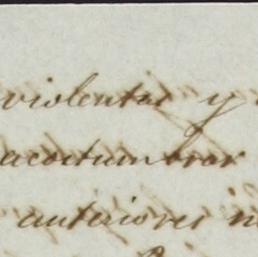 violentar y
acostumbrar
anteriores